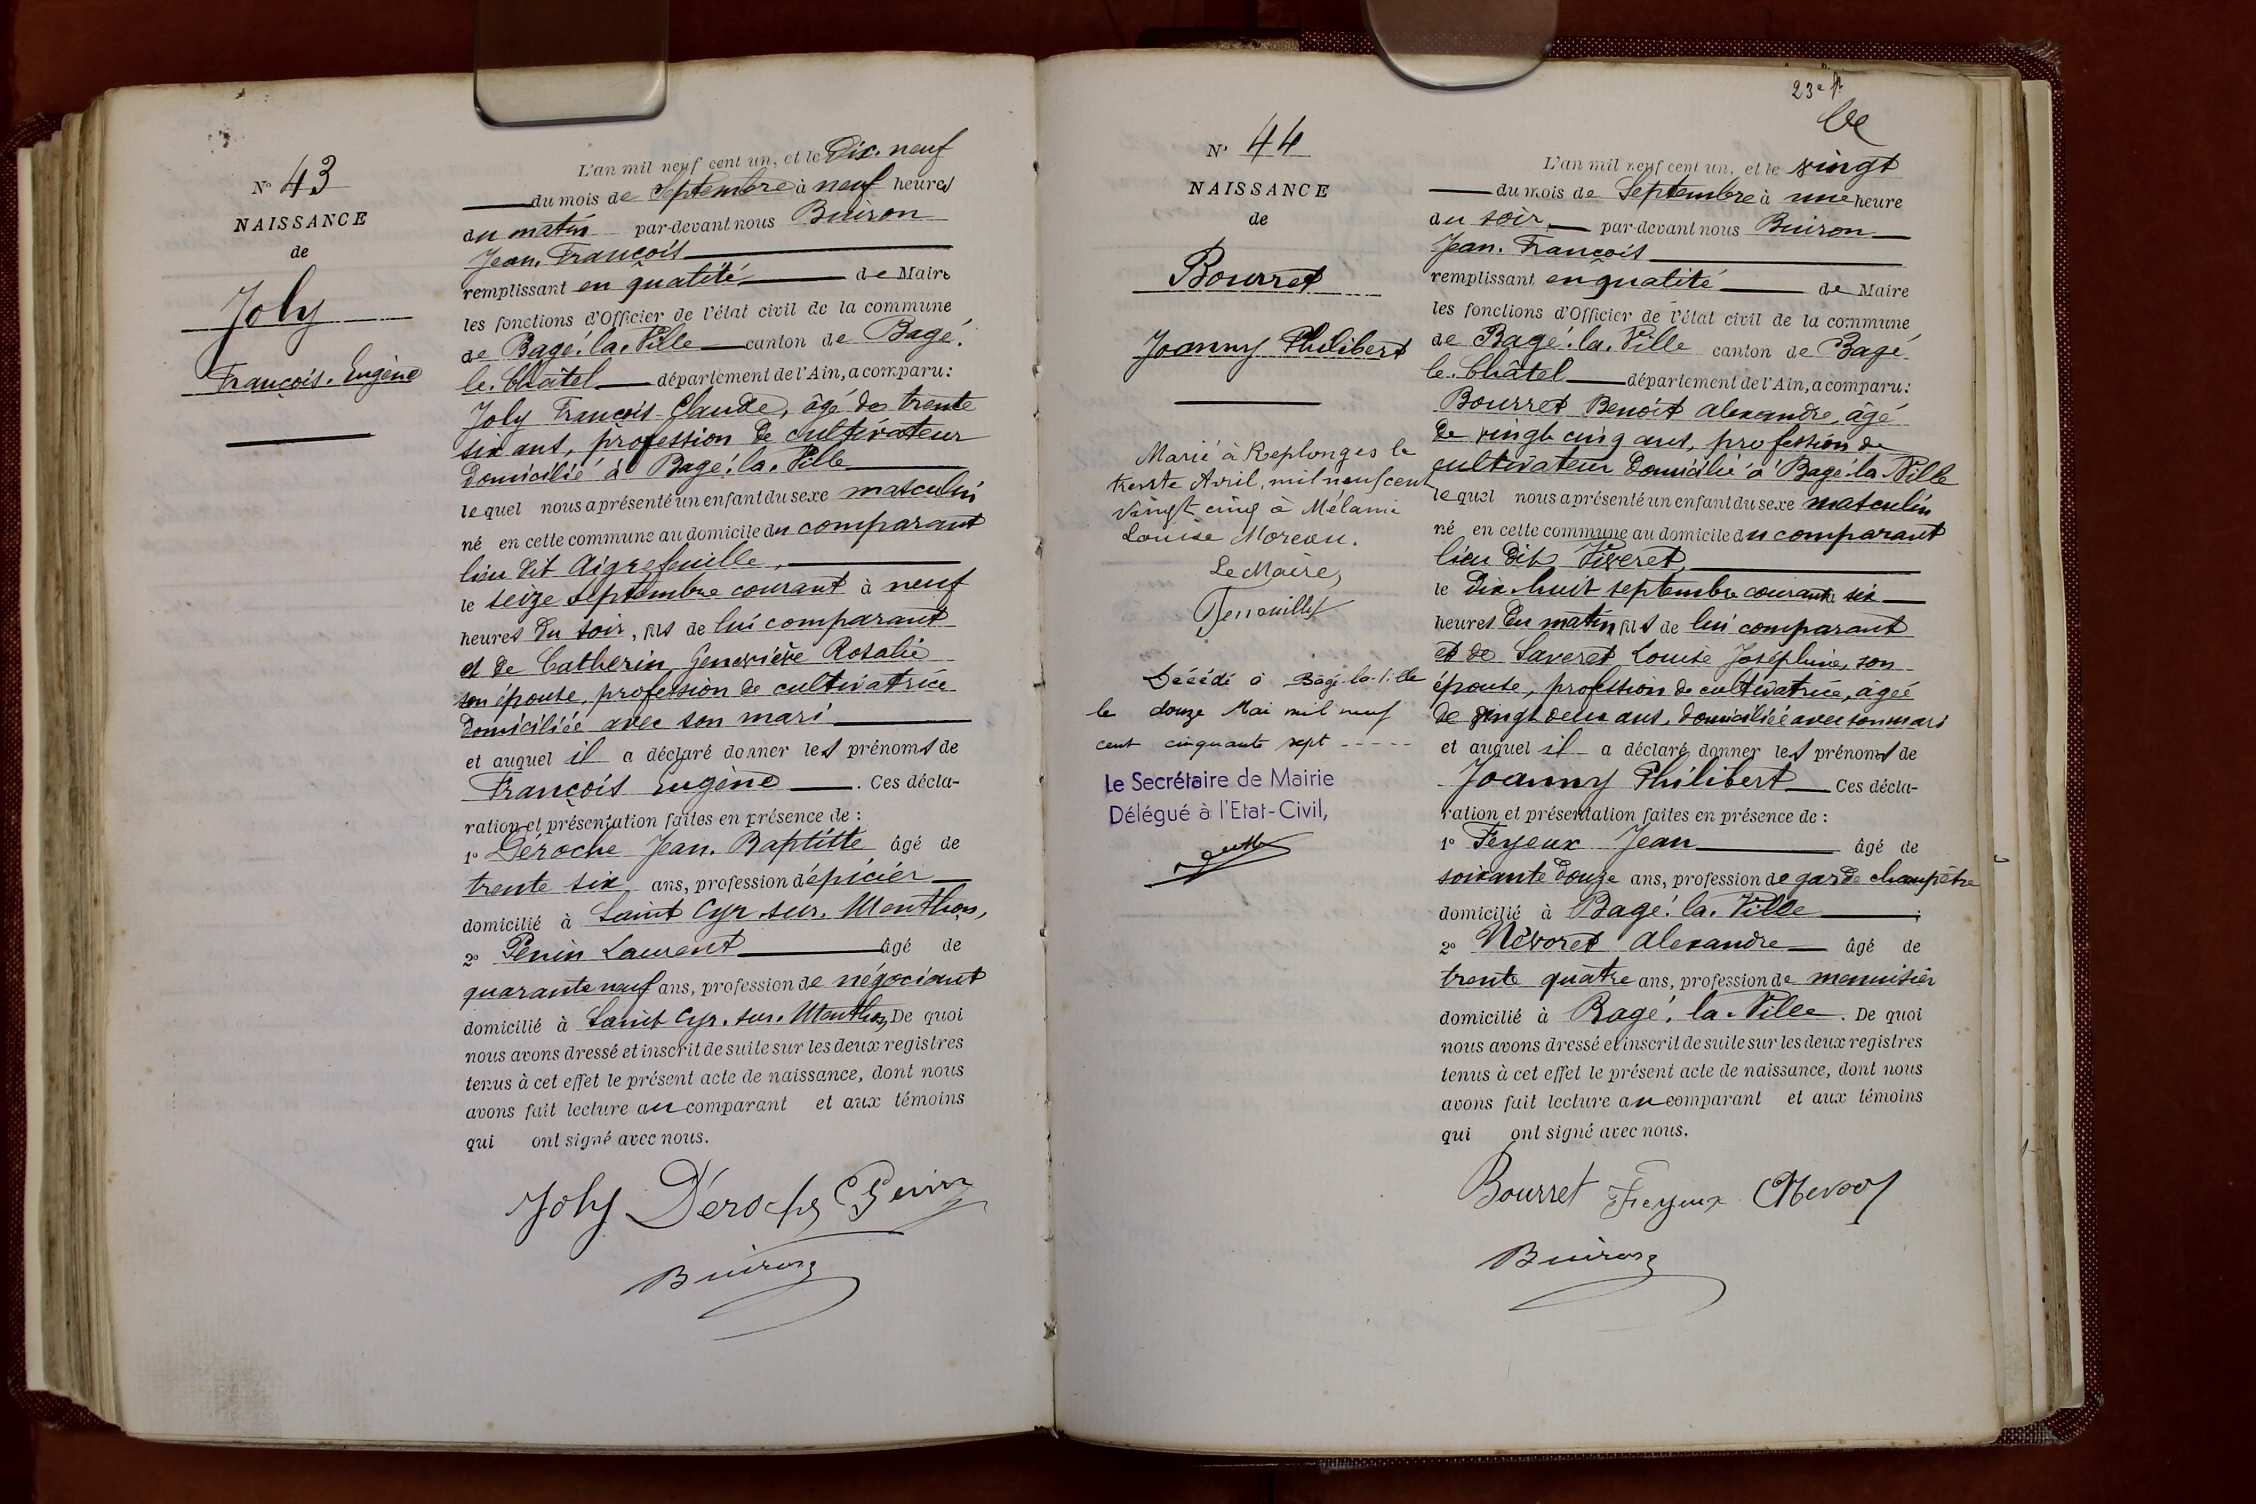 N° 43
NAISSANCE
de
Joly
François. Eugène
L'an mil neuf cent un, et le Dix. neuf
du mois de Septembre à neuf heures
du matin par-devant nous Buiron
Jean. François
remplissant en qualité de Maire
les fonctions d'Officier de l'état civil de la commune
de Bagé. la. Ville canton de Bagé.
le. Châtel département de l'Ain, a comparu :
Joly François Claude, âgé de trente
six ans, profession de cultivateur
domicilié à Bagé. la. Ville
lequel nous a présenté un enfant du sexe masculin
né en cette commune au domicile du comparant
lieu dit Aigrefeuille,
le seize septembre courant à neuf
heures du soir, fils de lui comparant
et de Catherin Geneviève Rosalie
son épouse, profession de cultivatrice
domiciliée avec son mari
et auquel il a déclaré donner les prénoms de
François Eugène . Ces décla-
ration et présentation faites en présence de :
1° Déroche Jean. Baptiste âgé de
trente six ans, profession d'épicier
domicilié à Saint Cyr. sur. Menthon,
2° Penin Laurent âgé de
quarante neuf ans, profession de négociant
domicilié à Saint Cyr. sur. Menthon De quoi
nous avons dressé et inscrit de suite sur les deux registres
tenus à cet effet le présent acte de naissance, dont nous
avons fait lecture au comparant et aux témoins
qui ont signé avec nous.
Joly Déroche Penin
Buiron
23e f.
N° 44
NAISSANCE
de
Bourret
Joanny Philibert
Marié à Replonges le
trente Avril, mil neuf cent
vingt cinq à Mélanie
Louise Moreau.
Le Maire,
Décédé à Bagé-la-Ville
le douze Mai mil neuf
cent cinquante sept -----
Le Secrétaire de Mairie
Délégué à l'Etat-Civil,
L'an mil neuf cent un, et le vingt
du mois de Septembre à une heure
du soir, par-devant nous Buiron
Jean. François
remplissant en qualité de Maire
les fonctions d'Officier de l'état civil de la commune
de Bagé. la. Ville canton de Bagé
le. Châtel département de l'Ain, a comparu :
Bourret Benoit Alexandre, âgé
de vingt cinq ans, profession de
cultivateur domicilié à Bagé. la Ville
lequel nous a présenté un enfant du sexe masculin
né en cette commune au domicile du comparant
lieu dit Viveret,
le dix huit septembre courant à six
heures du matin fils de lui comparant
et de Saveret Louise Joséphine, son
épouse, profession de cultivatrice, âgée
de vingt deux ans, domiciliée avec son mari
et auquel il a déclaré donner les prénoms de
Joanny Philibert Ces décla-
ration et présentation faites en présence de :
1° Feyeux Jean âgé de
soixante douze ans, profession de garde champêtre
domicilié à Bagé. la. Ville ;
2° Névoret Alexandre âgé de
trente quatre ans, profession de menuisier
domicilié à Bagé. la. Ville . De quoi
nous avons dressé et inscrit de suite sur les deux registres
tenus à cet effet le présent acte de naissance, dont nous
avons fait lecture au comparant et aux témoins
qui ont signé avec nous.
Bourret Feyeux
Buiron